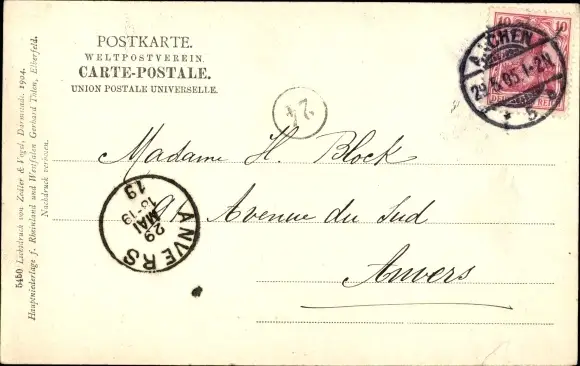 POSTKARTE.
WELTPOSTVEREIN.
CARTE-POSTALE.
UNION POSTALE UNIVERSELLE.
10 10
AACHEN
29.5.05.1-2N.
* * 5
24
Madame H. Block
91 Avenue du Sud
Anvers
ANVERS
19
18-19
MAI
29
5450 Lichtdruck von Zedler & Vogel, Darmstadt. 1904.
Hauptniederlage f. Rheinland und Westfalen Gerhard Thien, Elberfeld.
Nachdruck verboten.